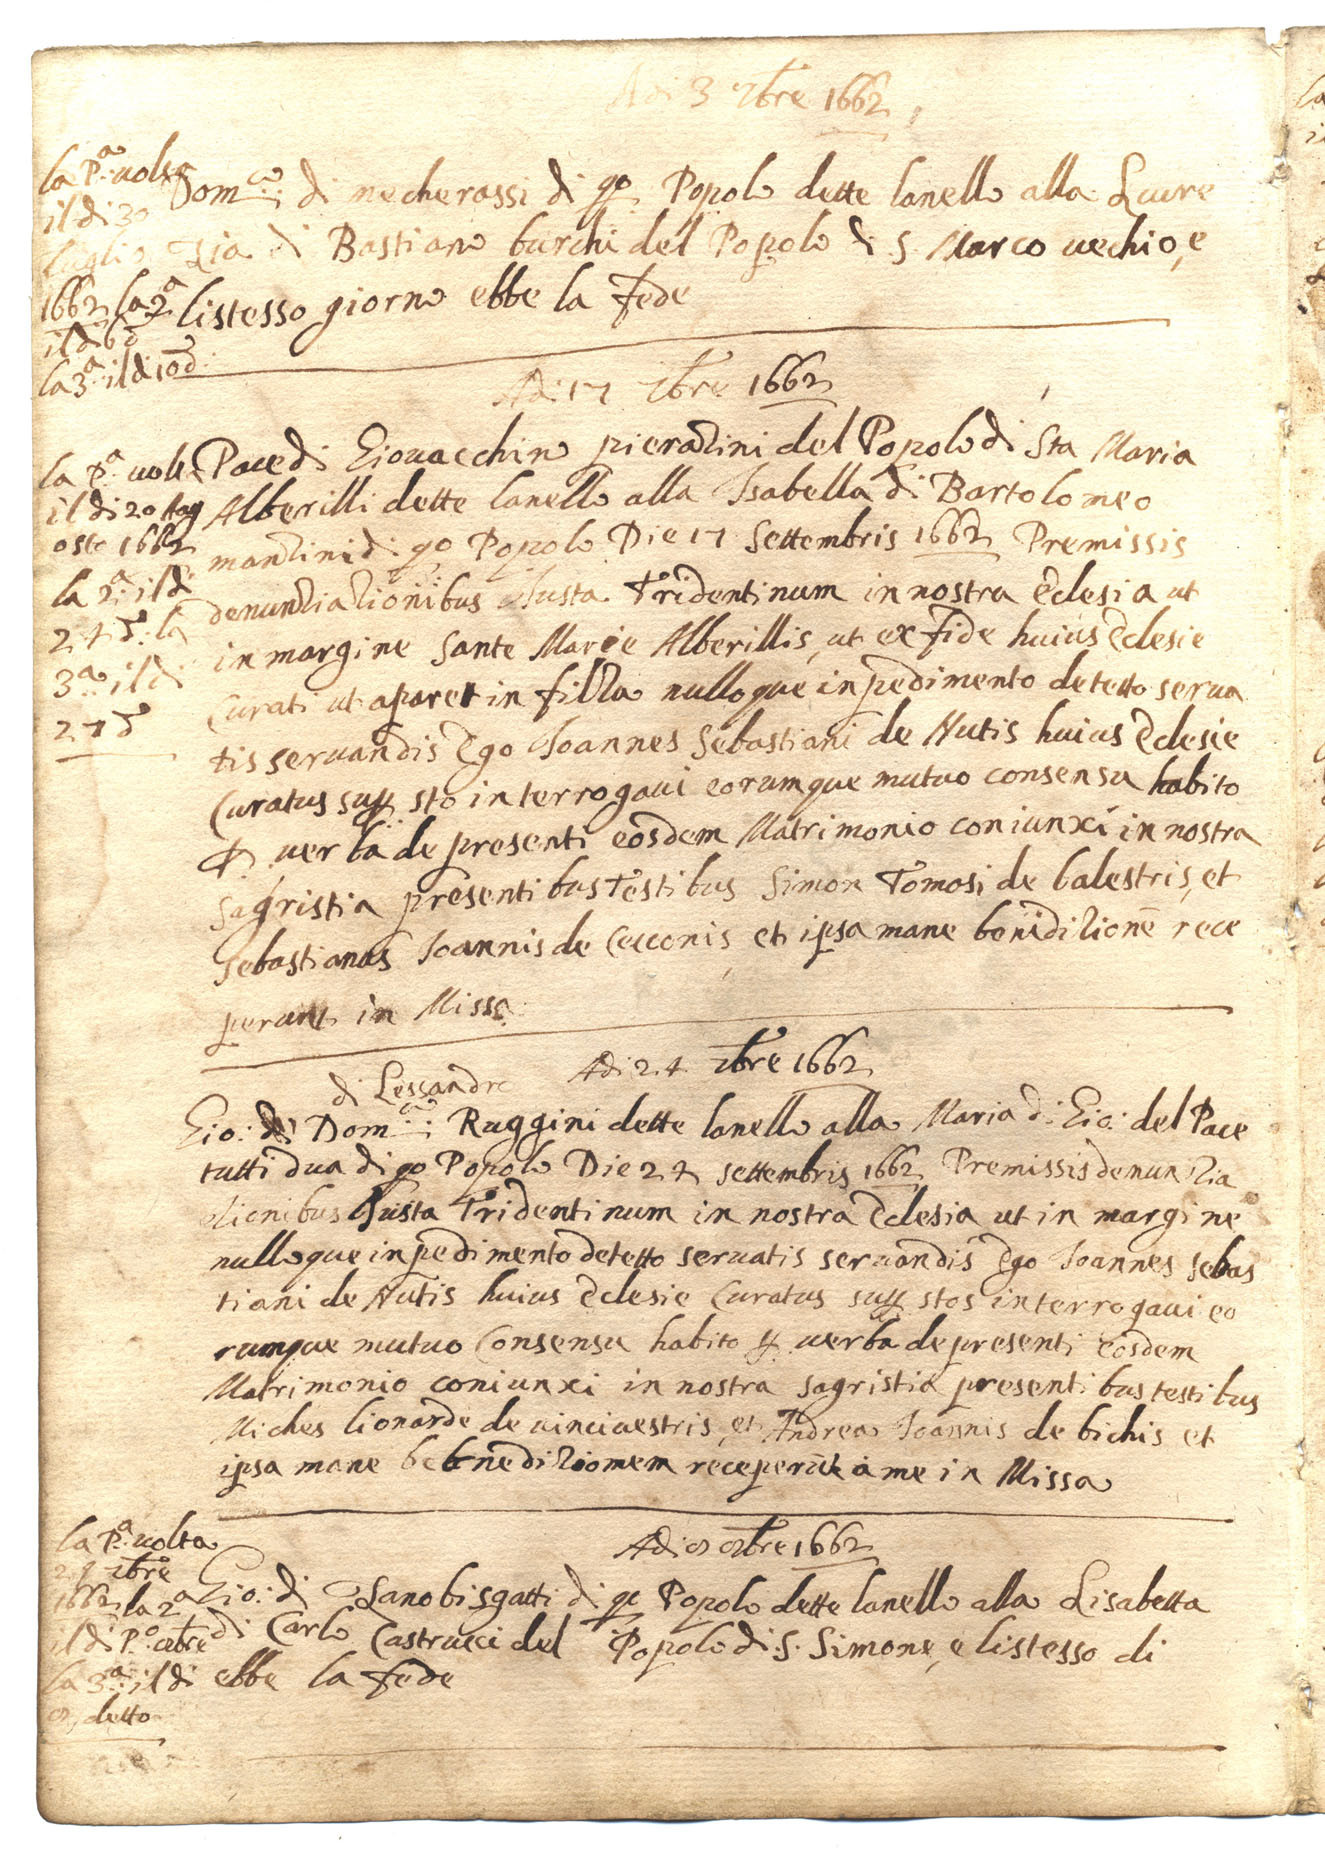 Adi 3 7bre 1662
la Pa: uolta
il di 30
luglio
1662 la 2a
il di 6 d
la 3a: il di 10 d:
Domco: di mecherassi di qo Popolo dette lanello alla Lucre
Zia di Bastiano burchi del Popolo di S. Marco uechio, e
listesso giorno ebbe la fede
Adi 17 7bre 1662
la pa uolta
il di 20 Ag
osto 1662
la 2a: il di
24 d: la
3a: il di
27 d
Pace di Giouacchino pieratini del Popolo di Sta Maria
Alberilli dette lanello alla Isabella di Bartolomeo
manzini di qo Popolo Die 17 Settembris 1662 Premissis
denunziazionibus Iusta Tridentinum in nostra Eclesia ut
in margine Sante Marie Alberillis, ut ex fide huius Eclesie
Curati ut aparet in filza nulloque inpedimento detetto serua
tis seruandis Ego Ioannes Sebastiani de Nutis huius Eclesie
Curatus supp sto interrogaui eorumque mutuo consensu habito
p uerba de presenti eosdem Matrimonio coniunxi in nostra
Sagristia presentibus Testibus Simon Tomosi de balestris, et
Sebastianus Ioannis de Cecconis, et ipsa mane bonidizione rece
perunt in Missa
Adi 24 7bre 1662
di Lessandro
Gio: di Domco: Ruggini dette lanello alla Maria di Gio: del Pace
tutti dua di qo Popolo Die 24 settembris 1662 Premissis denunzia
zionibus Iusta Tridentinum in nostra Eclesia ut in margine
nulloque inpedimento detetto seruatis seruandis Ego Ioannes Sebas
tiani de Nutis huius Eclesie Curatus supp stos interrogaui eo
rumque mutuo Consensu habito p uerba de presenti eosdem
Matrimonio coniunxi in nostra sagristia presentibus testibus
Miches lionarde de uinciuestris, et Andrea Ioannis de bichis et
ipsa mane benedizionem receperut a me in Missa
la Pa: uolta
24 7bre
1662 la 2a
il di Po 8bre
la 3a: il di
8 detto
Adi 8 8bre 1662
Gio: di Zanobi sgatti di qo Popolo dette lanello alla Lisabetta
di Carlo Castrucci del Popolo di S. Simone, e listesso di
ebbe la fede